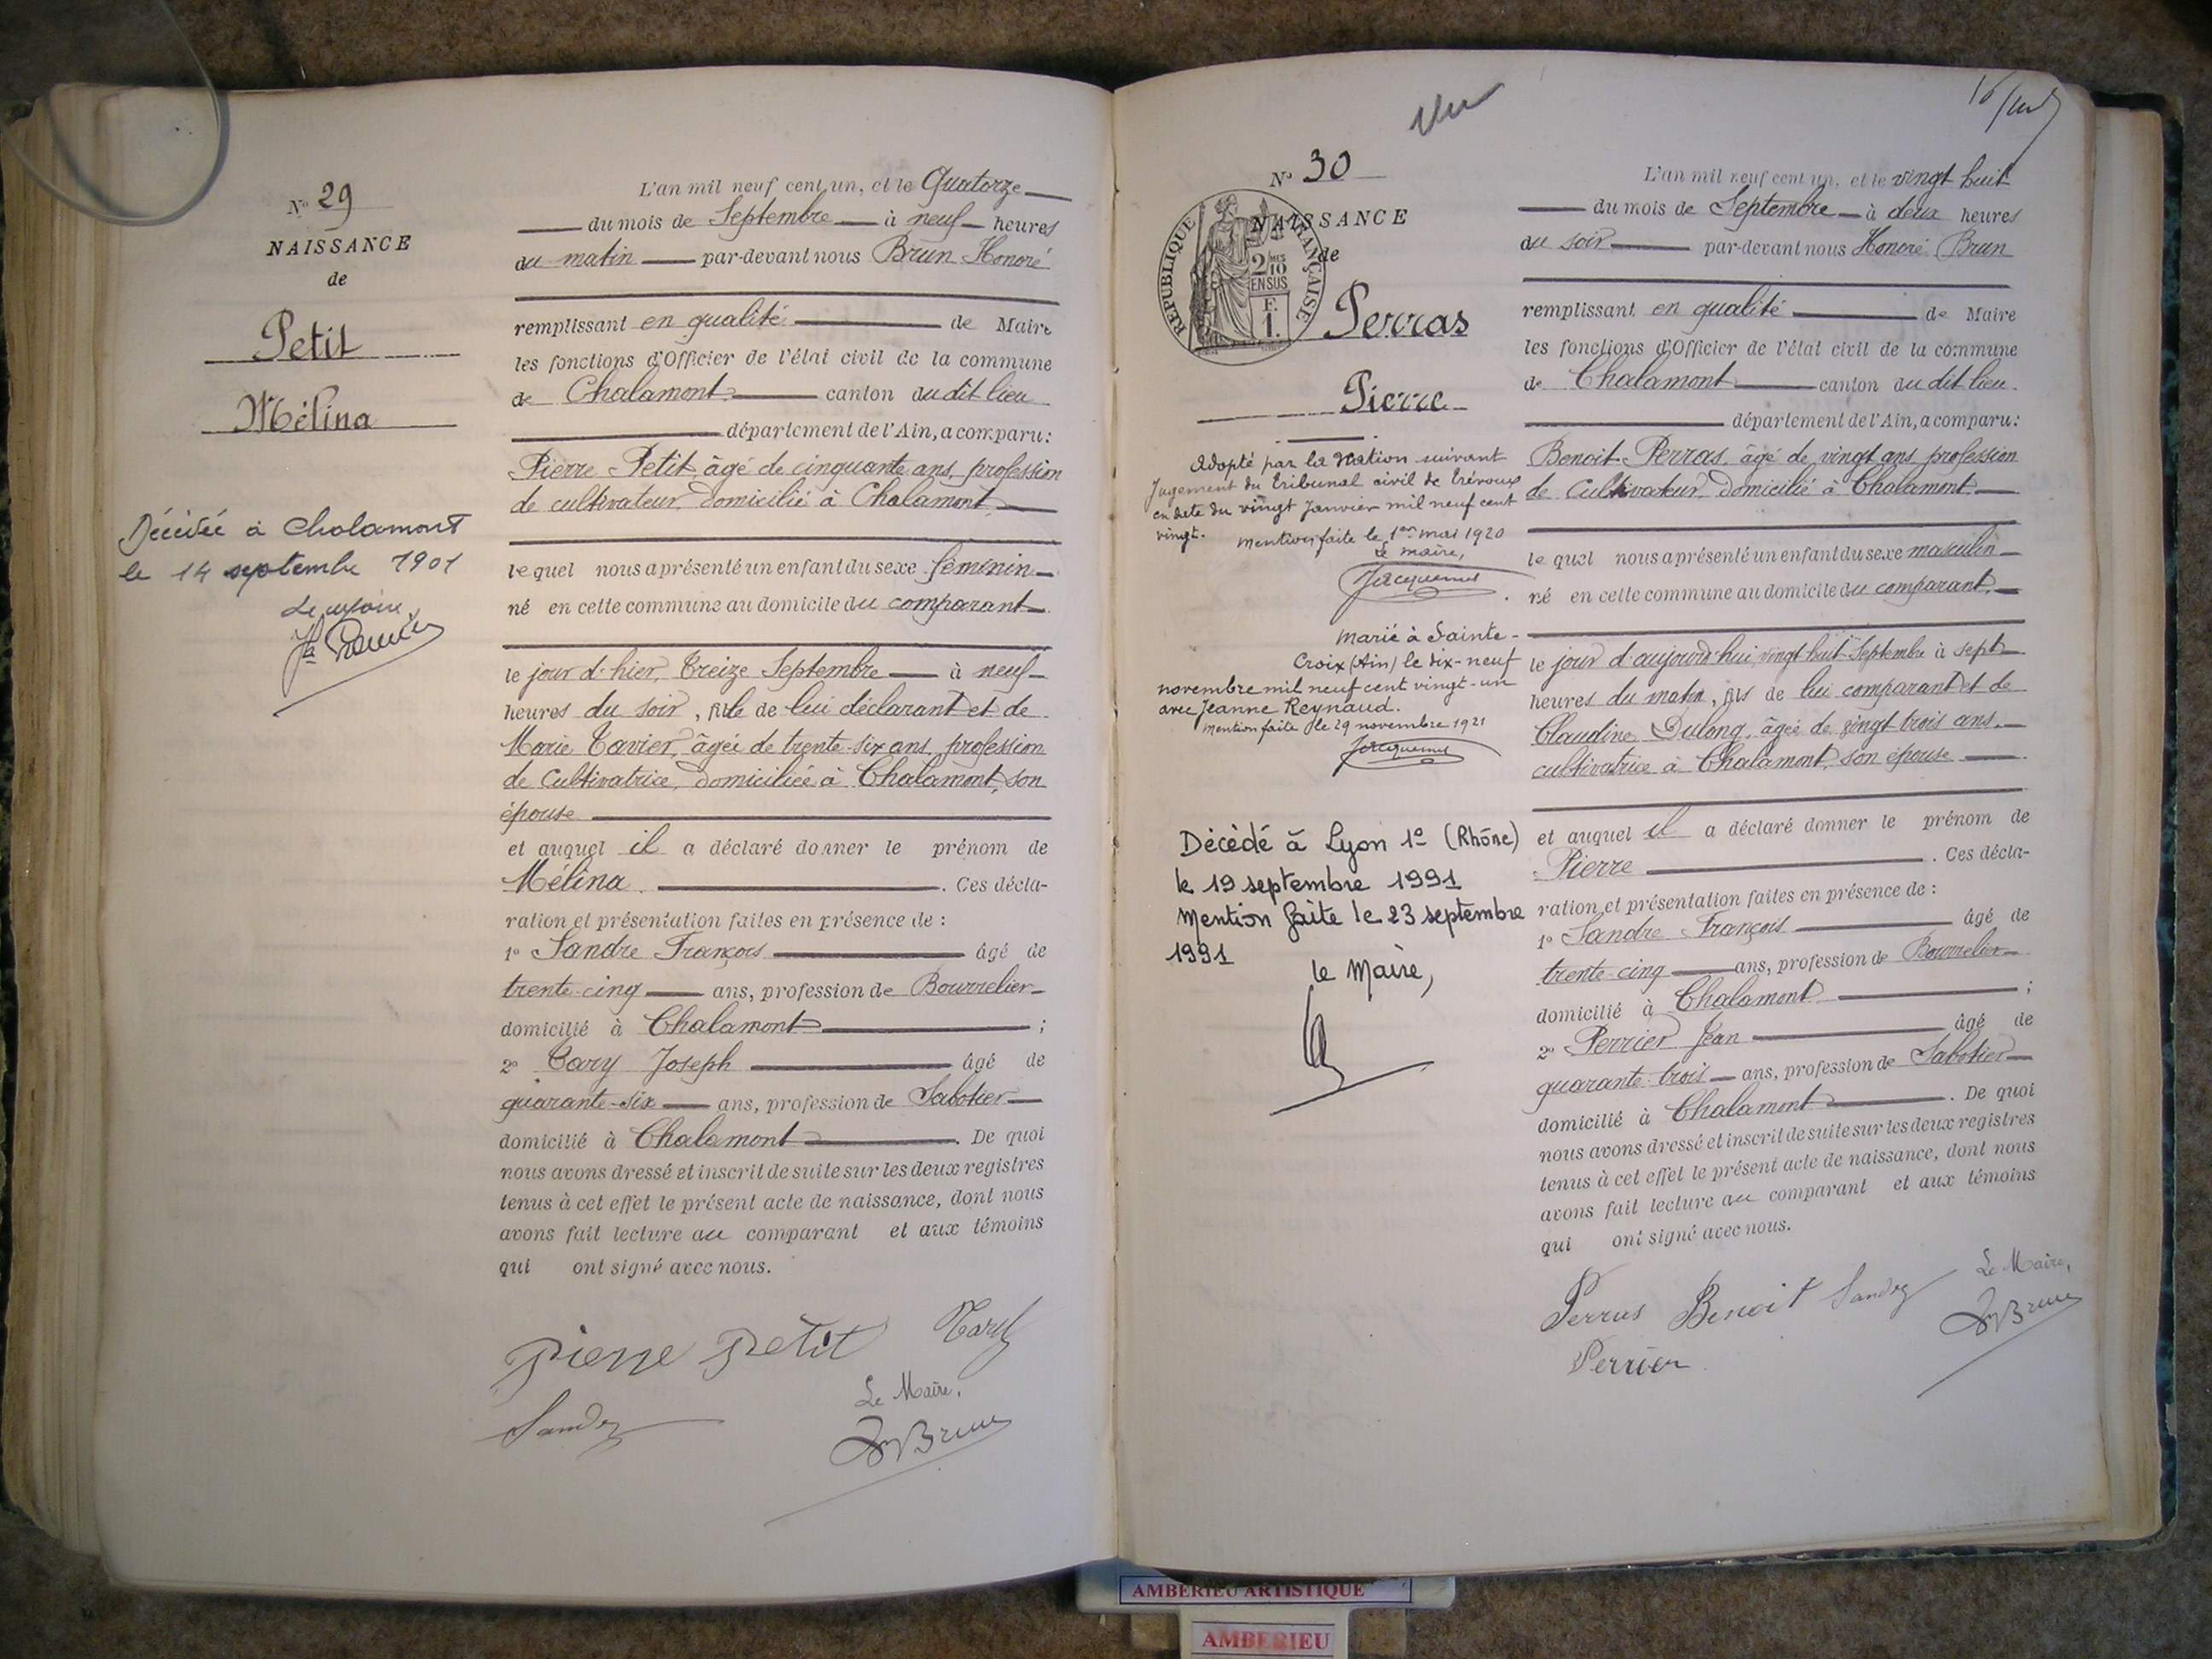 N° 29
NAISSANCE
de
Petit
Mélina
Décédée à Chalamont
le 14 septembre 1901
Le Maire,
L'an mil neuf cent un, et le Quatorze
du mois de Septembre à neuf heures
du matin par-devant nous Brun Honoré
remplissant en qualité de Maire
les fonctions d'Officier de l'état civil de la commune
de Chalamont canton du dit lieu
département de l'Ain, a comparu:
Pierre Petit âgé de cinquante ans, profession
de cultivateur, domicilié à Chalamont
lequel nous a présenté un enfant du sexe féminin
né en cette commune au domicile du comparant
le jour d'hier, treize Septembre à neuf
heures du soir, fille de lui déclarant et de
Marie Tavier, âgée de trente-six ans, profession
de Cultivatrice, domiciliée à Chalamont, son
épouse
et auquel il a déclaré donner le prénom de
Mélina. Ces décla-
ration et présentation faites en présence de :
1° Sandre François âgé de
trente-cinq ans, profession de Bourrelier
domicilié à Chalamont ;
2° Tary Joseph âgé de
quarante-six ans, profession de Sabotier
domicilié à Chalamont. De quoi
nous avons dressé et inscrit de suite sur les deux registres
tenus à cet effet le présent acte de naissance, dont nous
avons fait lecture au comparant et aux témoins
qui ont signé avec nous.
Pierre Petit Tary
Sandre
Le Maire,
Hré Brun
Vu
N° 30
RÉPUBLIQUE FRANÇAISE
2/10 EN SUS
F. 1.
NAISSANCE
de
Perras
Pierre
Adopté par la Nation suivant
Jugement du tribunal civil de Trévoux
en date du vingt Janvier mil neuf cent
vingt. Mention faite le 1er mai 1920
Le maire,
Jacquemet
Marié à Sainte-
Croix (Ain) le dix-neuf
novembre mil neuf cent vingt-un
avec Jeanne Reynaud.
Mention faite le 29 novembre 1921
Jacquemet
Décédé à Lyon 1e (Rhône)
le 19 septembre 1991
Mention faite le 23 septembre
1991
le Maire,
L'an mil neuf cent un, et le vingt huit
du mois de Septembre à deux heures
du soir par-devant nous Honoré Brun
remplissant en qualité de Maire
les fonctions d'Officier de l'état civil de la commune
de Chalamont canton du dit lieu
département de l'Ain, a comparu:
Benoit Perras, âgé de vingt ans, profession
de Cultivateur, domicilié à Chalamont
lequel nous a présenté un enfant du sexe masculin
né en cette commune au domicile du comparant,
le jour d'aujourd'hui, vingt huit Septembre à sept
heures du matin, fils de lui comparant et de
Claudine Dulong, âgée de vingt trois ans,
cultivatrice à Chalamont, son épouse
et auquel il a déclaré donner le prénom de
Pierre. Ces décla-
ration et présentation faites en présence de :
1° Sandre François âgé de
trente-cinq ans, profession de Bourrelier
domicilié à Chalamont ;
2° Perrier Jean âgé de
quarante-trois ans, profession de Sabotier
domicilié à Chalamont. De quoi
nous avons dressé et inscrit de suite sur les deux registres
tenus à cet effet le présent acte de naissance, dont nous
avons fait lecture au comparant et aux témoins
qui ont signé avec nous.
Perras Benoit Sandre
Perrier
Le Maire,
Hré Brun
AMBERIEU ARTISTIQUE
AMBERIEU